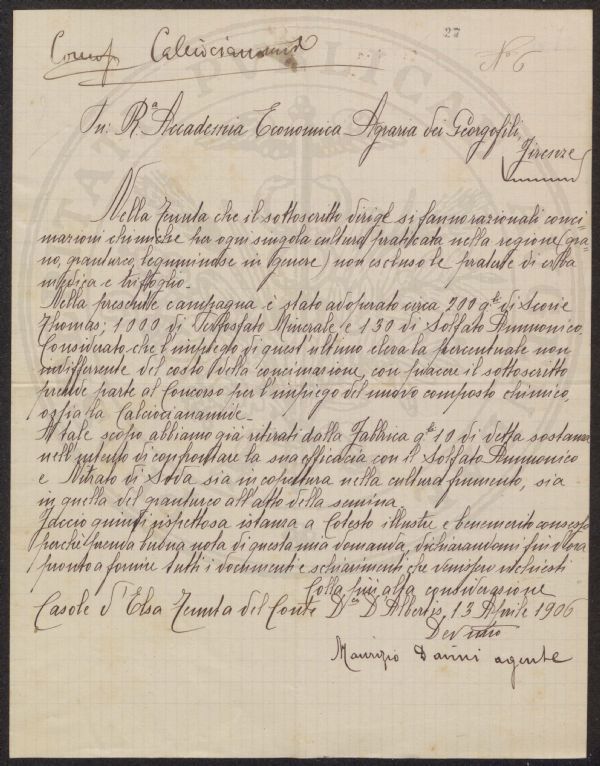 27
No 6
Concorso Calciocianamide
In: Rª Accademia Economica Agraria dei Georgofili,
Firenze
Nella Tenuta che il sottoscritto dirige si fanno razionali conci-
mazioni chimiche per ogni singola cultura praticata nella regione (gra-
no, granturco, leguminose in genere) non escluso le praterie di erba
medica e trifoglio.
Nella presente campagna è stato adoperato circa 200 q.li di Scorie
Thomas; 1000 di Perfosfato Minerale e 130 di Solfato Ammonico.
Considerato che l'impiego di quest'ultimo eleva la percentuale non
indifferente del costo della concimazione, con piacere il sottoscritto
prende parte al Concorso per l'impiego del nuovo composto chimico,
ossia la Calciocianamide.
A tale scopo abbiamo già ritirati dalla Fabbrica q.li 10 di detta sostanza
nell'intento di confrontare la sua efficacia con il Solfato Ammonico
e Nitrato di Soda sia in copertura nella cultura frumento, sia
in quella del granturco all'atto della semina.
Faccio quindi rispettosa istanza a Cotesto illustre e benemerito consesso
perché prenda buona nota di questa mia domanda, dichiarandomi fin d'ora
pronto a fornire tutti i documenti e schiarimenti che venissero richiesti
Colla più alta considerazione
Casole d'Elsa Tenuta del Conte D'Albertis, 13 Aprile 1906
Dev
Maurizio Danni agente